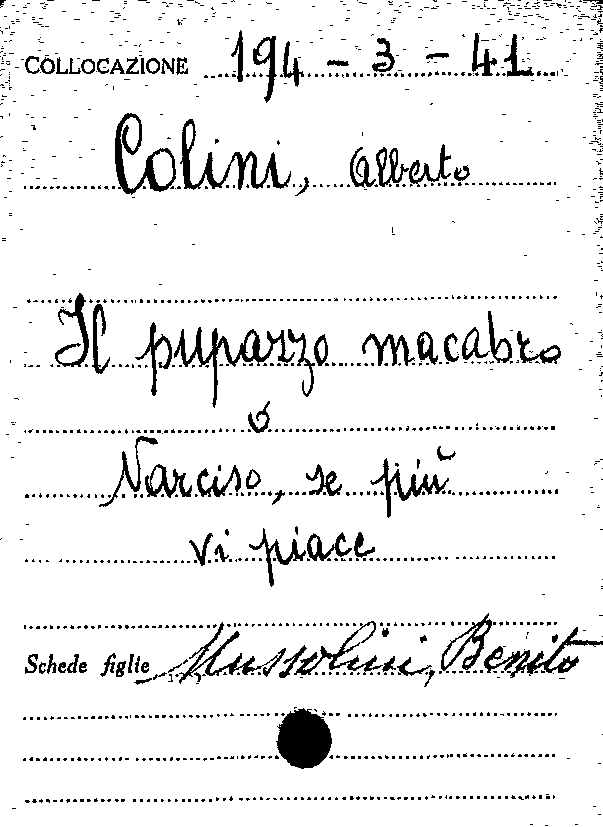 COLLOCAZIONE 194 - 3 - 41
Colini, Alberto
Il pupazzo macabro
o
Narciso, se più
vi piace
Schede figlie Mussolini, Benito